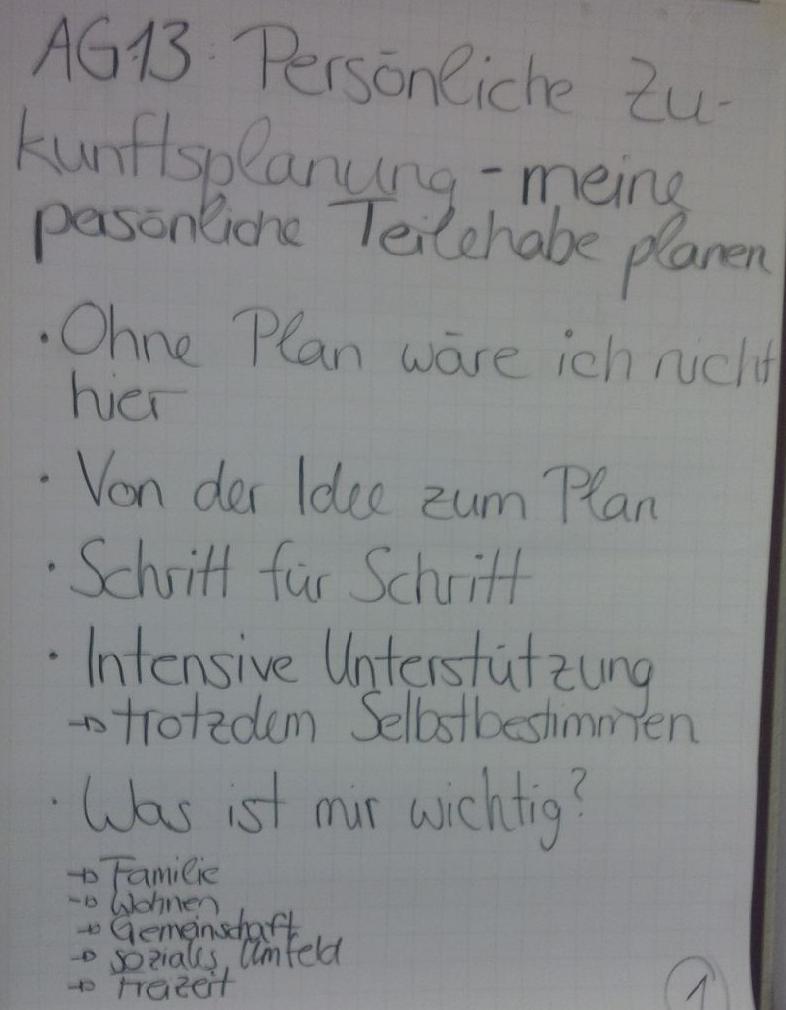 AG13: Persönliche Zu-
kunftsplanung - meine
persönliche Teilehabe planen
· Ohne Plan wäre ich nicht
hier
· Von der Idee zum Plan
· Schritt für Schritt
· Intensive Unterstützung
→ trotzdem Selbstbestimmen
· Was ist mir wichtig?
→ Familie
→ Wohnen
→ Gemeinschaft
→ soziales Umfeld
→ Freizeit
1